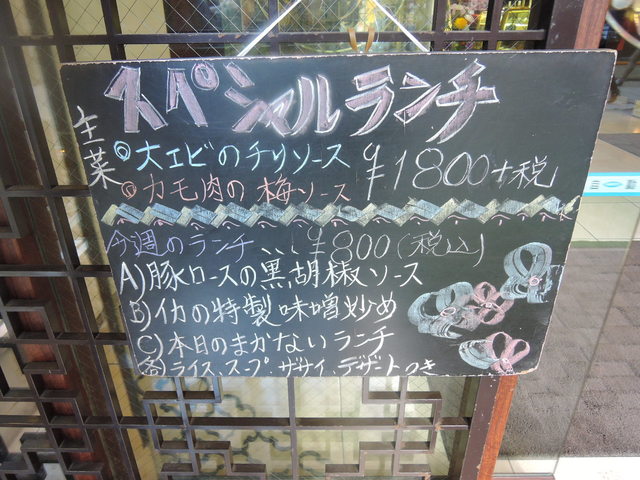 スペシャルランチ
主菜
◎大エビのチリソース
◎カモ肉の梅ソース
¥1800+税
今週のランチ ¥800(税込)
A)豚ロースの黒胡椒ソース
B)イカの特製味噌炒め
C)本日のまかないランチ
各)ライス、スープ、ザーサイ、デザートつき